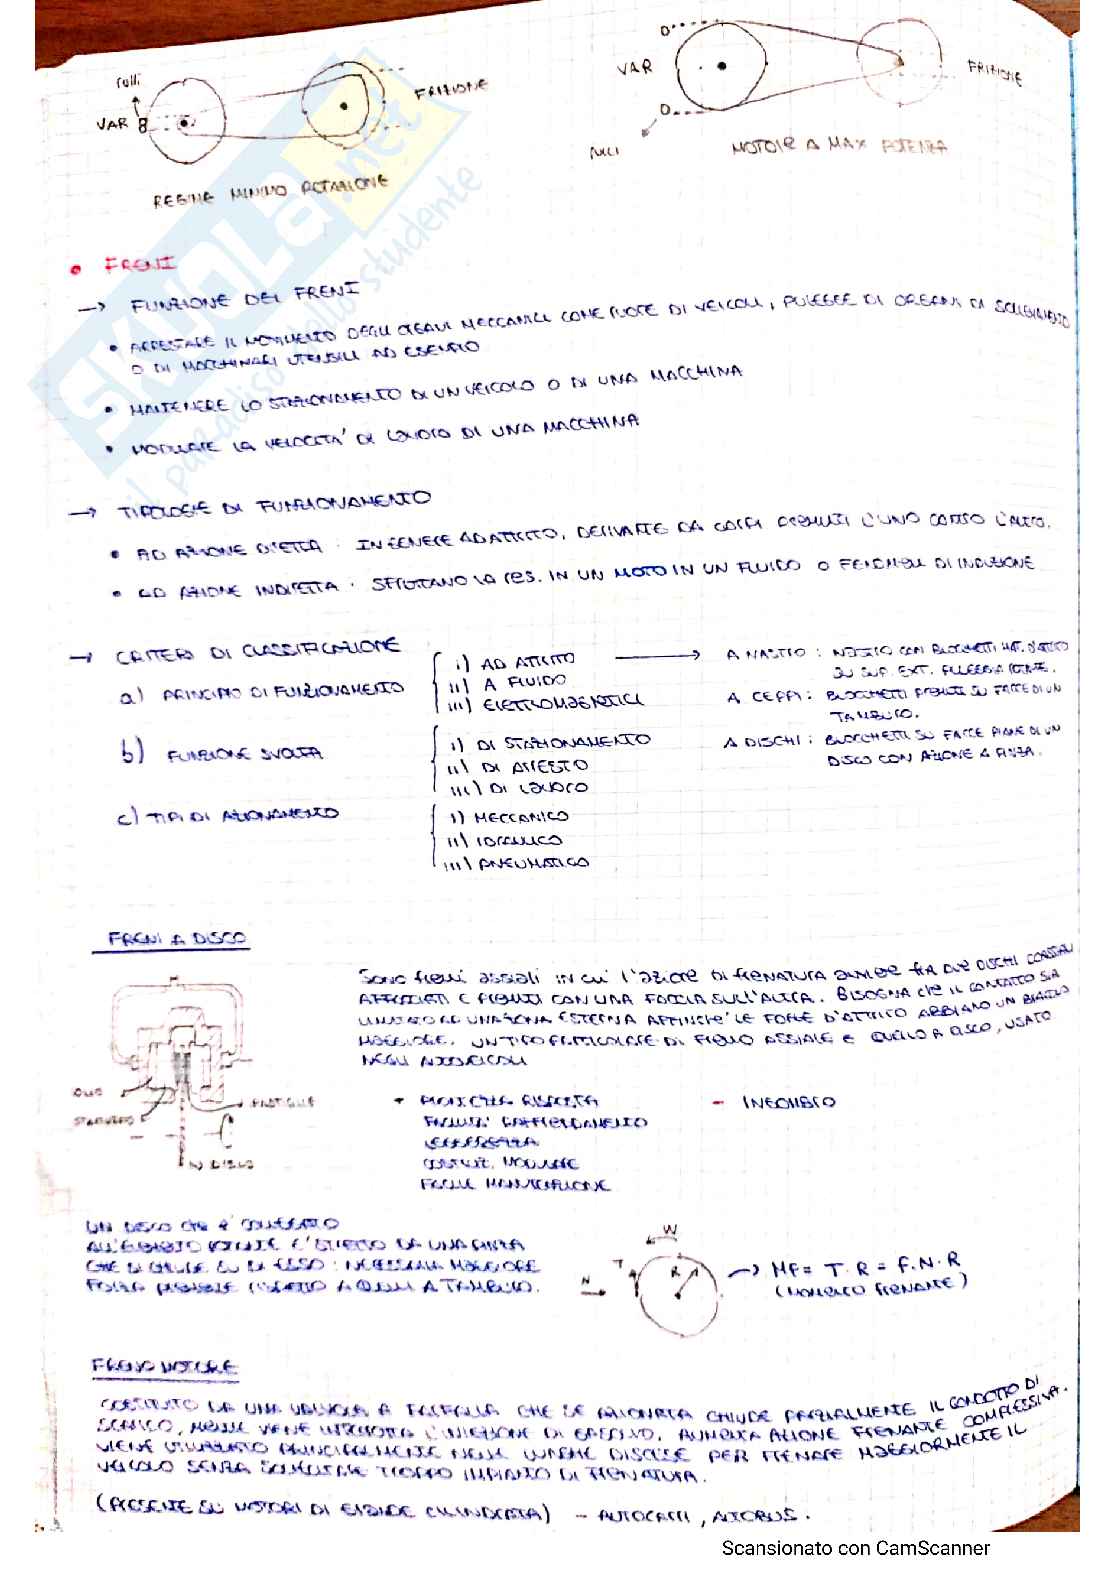 rulli
VAR
FRIZIONE
REGIME MINIMO ROTAZIONE
VAR
FRIZIONE
RULLI
MOTORE A MAX POTENZA
SKUOLA.net
il paradiso dello studente
• FRENI
→ FUNZIONE DEI FRENI
• ARRESTARE IL MOVIMENTO DEGLI ORGANI MECCANICI COME RUOTE DI VEICOLI, PULEGGE DI ORGANI DI SOLLEVAMENTO
O DI MACCHINARI UTENSILI AD ESEMPIO
• MANTENERE LO STAZIONAMENTO DI UN VEICOLO O DI UNA MACCHINA
• MODULARE LA VELOCITA' DI LAVORO DI UNA MACCHINA
→ TIPOLOGIE DI FUNZIONAMENTO
• AD AZIONE DIRETTA : IN GENERE AD ATTRITO, DERIVANTE DA CORPI PREMUTI L'UNO CONTRO L'ALTRO.
• AD AZIONE INDIRETTA : SFRUTTANO LA res. IN UN MOTO IN UN FLUIDO O FENOMENI DI INDUZIONE
→ CRITERI DI CLASSIFICAZIONE
a) PRINCIPIO DI FUNZIONAMENTO
i) AD ATTRITO → A NASTRO : NASTRO CON BLOCCHETTI MAT. D'ATTRITO
SU SUP. EXT. PULEGGIA ROTANTE.
ii) A FLUIDO
iii) ELETTROMAGNETICI
A CEPPI : BLOCCHETTI PREMUTI SU FACCE DI UN
TAMBURO.
A DISCHI : BLOCCHETTI SU FACCE PIANE DI UN
DISCO CON AZIONE A PINZA.
b) FUNZIONE SVOLTA
i) DI STAZIONAMENTO
ii) DI ARRESTO
iii) DI LAVORO
c) TIPI DI AZIONAMENTO
i) MECCANICO
ii) IDRAULICO
iii) PNEUMATICO
FRENI A DISCO
Sono freni assiali in cui l'azione DI FRENATURA avviene FRA DUE DISCHI COASSIALI
AFFACCIATI E PREMUTI CON UNA FACCIA SULL'ALTRA. BISOGNA che IL CONTATTO SIA
LIMITATO AD UNA ZONA ESTERNA AFFINCHE' LE FORZE D'ATTRITO ABBIANO UN BRACCIO
MAGGIORE. UN TIPO PARTICOLARE DI FRENO ASSIALE E' QUELLO A DISCO, USATO
NEGLI AUTOVEICOLI
OLIO
STANTUFFO
PASTIGLIE
DISCO
+ 
FACILITA' RAFFREDDAMENTO
LEGGEREZZA
COSTRUZ. MODULARE
FACILE MANUTENZIONE
- INGOMBRO
UN DISCO che e' COLLEGATO
ALL'ELEMENTO ROTANTE E' STRETTO DA UNA PINZA
CHE SI CHIUDE SU DI ESSO : NECESSARIA MAGGIORE
FORZA PREMENTE RISPETTO A QUELLI A TAMBURO.
W
T
R
N
→ Mf = T.R = f.N.R
(MOMENTO FRENANTE)
FRENO MOTORE
COSTITUITO DA UNA VALVOLA A FARFALLA CHE SE AZIONATA CHIUDE PARZIALMENTE IL CONDOTTO DI
SCARICO, MENTRE VIENE INTERROTTA L'INIEZIONE DI GASOLIO. AUMENTA AZIONE FRENANTE COMPLESSIVA.
VIENE UTILIZZATO PRINCIPALMENTE NELLE LUNGHE DISCESE PER FRENARE MAGGIORMENTE IL
VEICOLO SENZA SOLLECITARE TROPPO IMPIANTO DI FRENATURA.
(PRESENTE SU MOTORI DI GRANDE CILINDRATA) - AUTOCARRI, AUTOBUS.
Scansionato con CamScanner